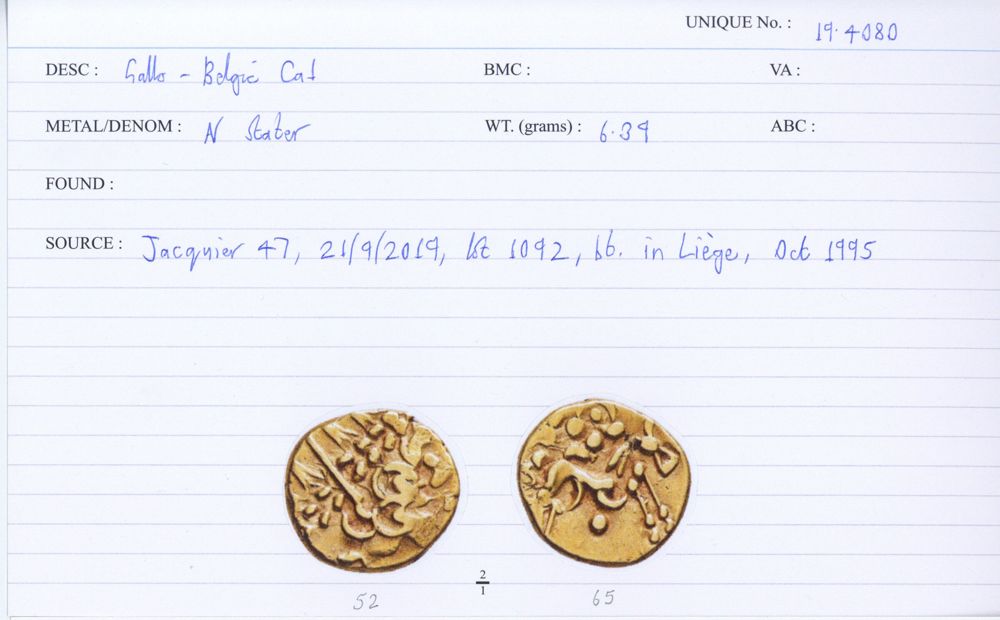 UNIQUE No. : 19.4080
DESC : Gallo-Belgic Ca1 BMC : VA :
METAL/DENOM : N Stater WT. (grams) : 6.39 ABC :
FOUND :
SOURCE : Jacquier 47, 21/9/2019, lot 1092, bt. in Liège, Oct 1995
2
1
52 65